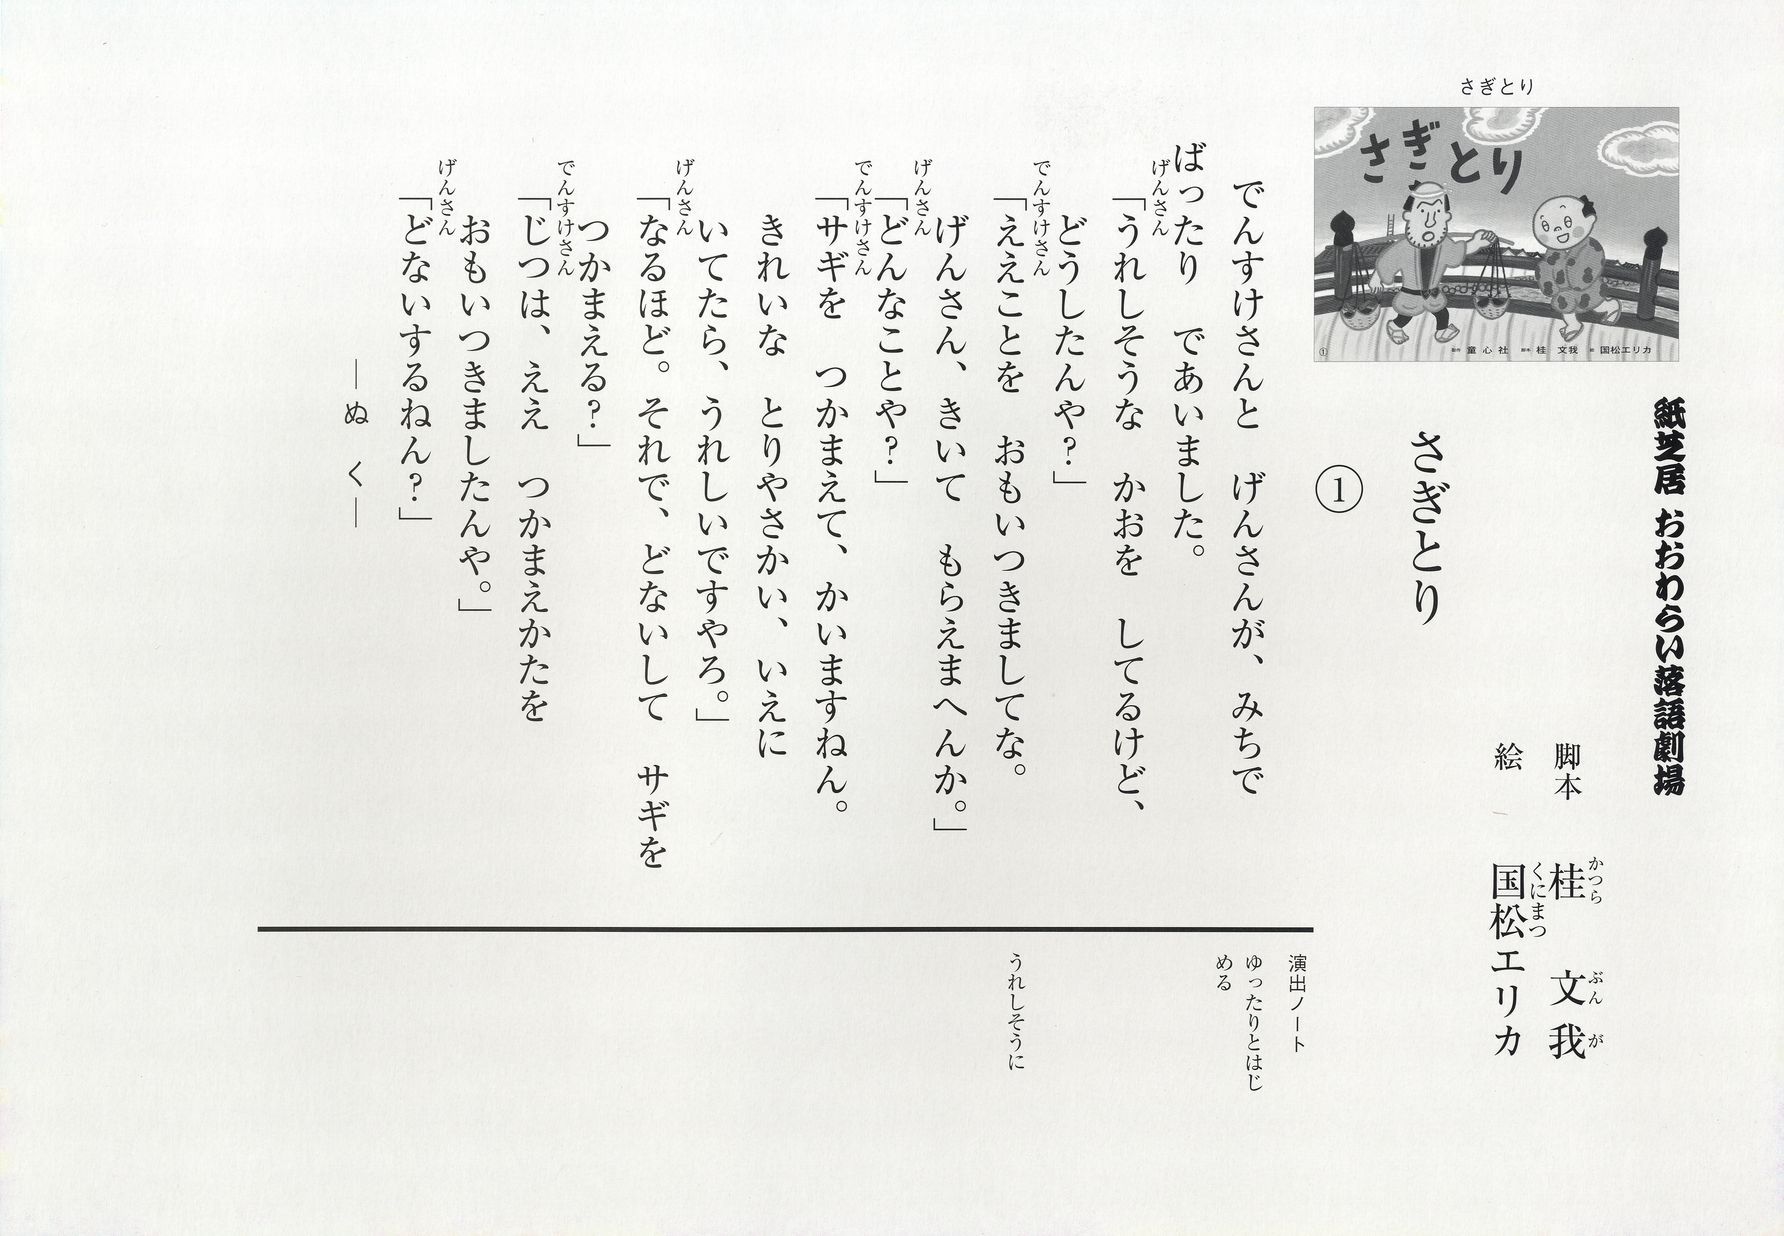 さぎとり
さぎとり
① 製作 童心社 脚本 桂 文我 絵 国松エリカ
紙芝居 おおわらい落語劇場
脚本 桂 文我
かつら ぶん が
絵 国松エリカ
くにまつ
さぎとり
①
でんすけさんと げんさんが、みちで
ばったり であいました。
げんさん
「うれしそうな かおを してるけど、
どうしたんや?」
でんすけさん
「ええことを おもいつきましてな。
げんさん、きいて もらえまへんか。」
げんさん
「どんなことや?」
でんすけさん
「サギを つかまえて、かいますねん。
きれいな とりやさかい、いえに
いてたら、うれしいですやろ。」
げんさん
「なるほど。それで、どないして サギを
つかまえる?」
でんすけさん
「じつは、ええ つかまえかたを
おもいつきましたんや。」
げんさん
「どないするねん?」
―ぬ く―
演出ノート
ゆったりとはじ
める
うれしそうに